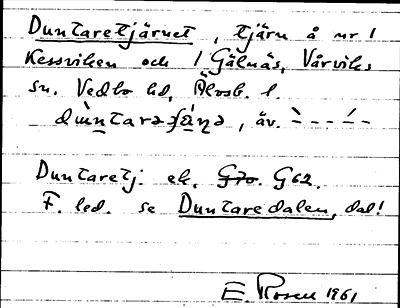 Duntaretjärnet, tjärn å nr 1
Kessviken och 1 Gälnäs, Vårviks
sn. Vedbo hd, Älvsb. l.
dùntarəʃä́ṇə, äv. `---´--
Duntaretj: ek. G70. G62.
F. led. se Duntaredalen, dal!
E. Rosen 1961